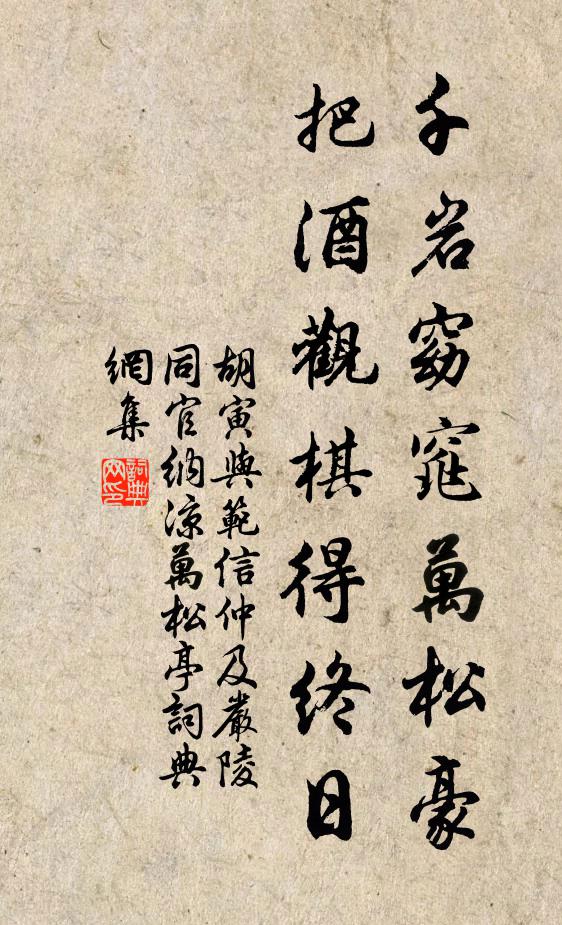 千岩窈窕萬松豪
把酒觀棋得終日
胡寅與範信仲及嚴陵
同官納涼萬松亭詞典
網集
詞典
网印